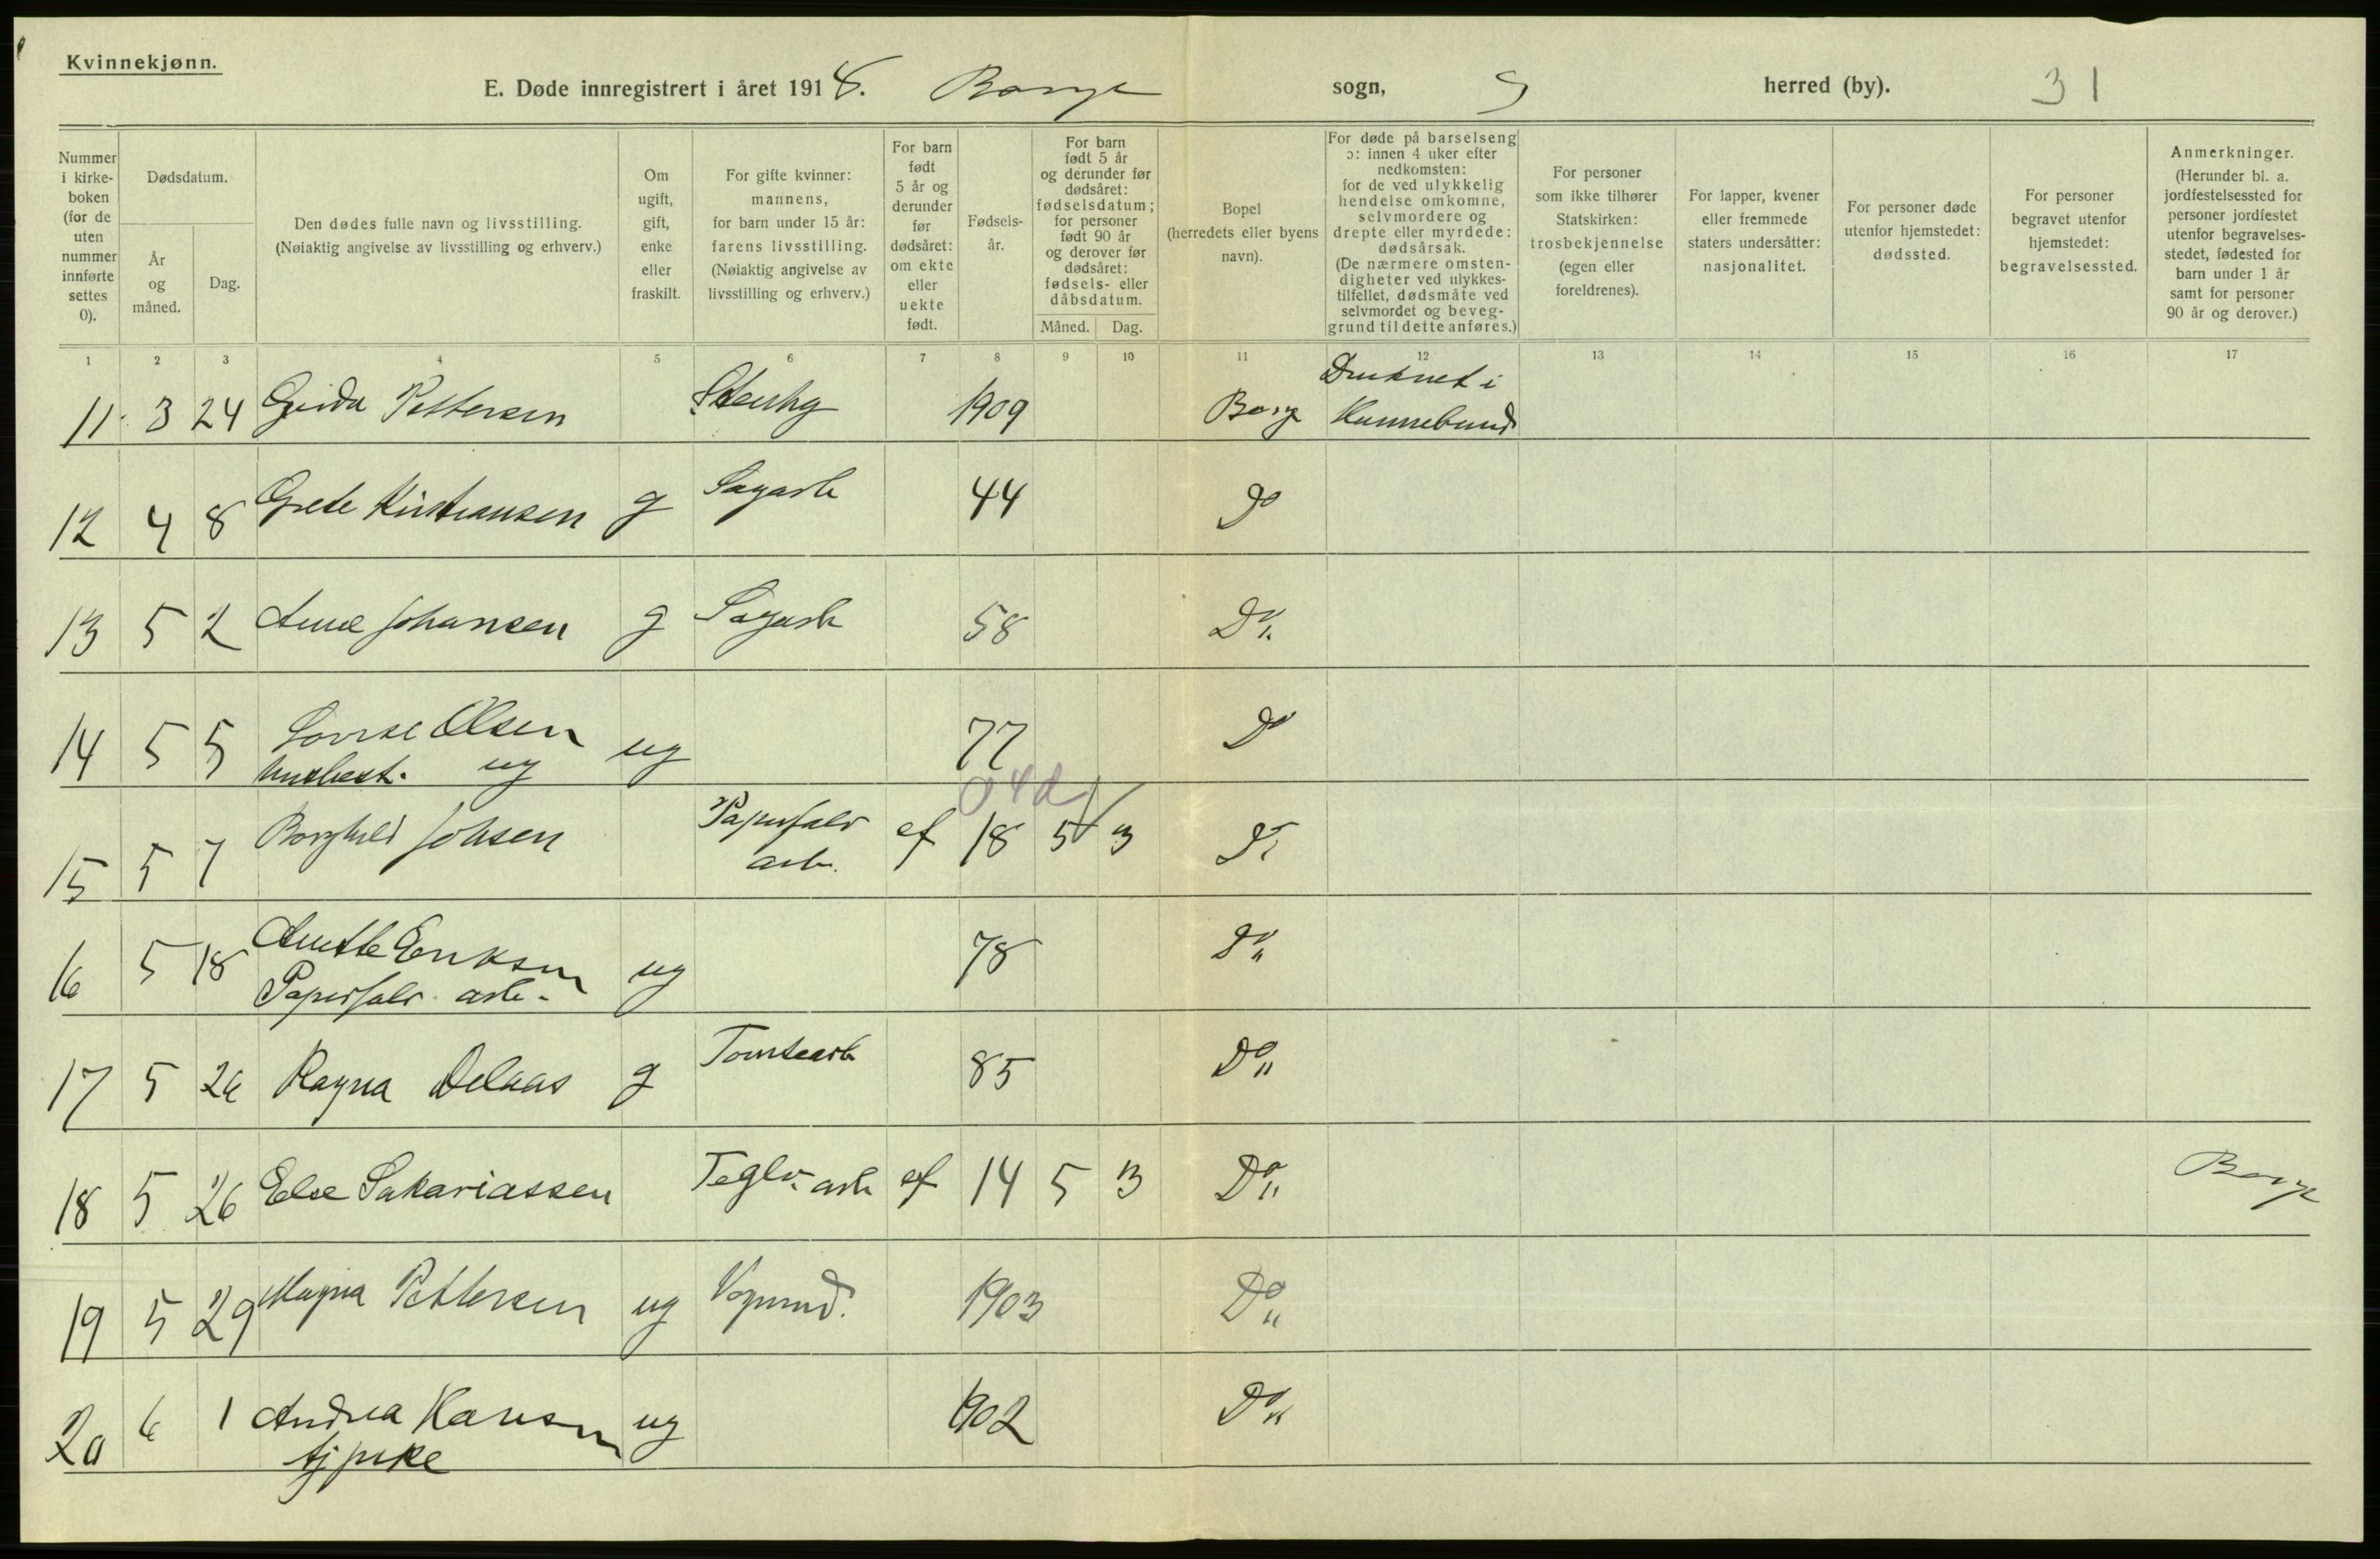 Kvinnekjønn.
E. Døde innregistrert i året 1918. Borge sogn, herred (by). 31
Nummer i kirke-boken (for de uten nummer innførte settes 0).
Dødsdatum.
År og måned.
Dag.
Den dødes fulle navn og livsstilling. (Nøiaktig angivelse av livsstilling og erhverv.)
Om ugift, gift, enke eller fraskilt.
For gifte kvinner: mannens, for barn under 15 år: farens livsstilling. (Nøiaktig angivelse av livsstilling og erhverv.)
For barn født 5 år og derunder før dødsåret: om ekte eller uekte født.
Fødsels-år.
For barn født 5 år og derunder før dødsåret: fødselsdatum; for personer født 90 år og derover før dødsåret: fødsels- eller dåbsdatum.
Måned. Dag.
Bopel (herredets eller byens navn).
For døde på barselseng ɔ: innen 4 uker efter nedkomsten: for de ved ulykkelig hendelse omkomne, selvmordere og drepte eller myrdede: dødsårsak. (De nærmere omsten-digheter ved ulykkes-tilfellet, dødsmåte ved selvmordet og beveg-grund til dette anføres.)
For personer som ikke tilhører Statskirken: trosbekjennelse (egen eller foreldrenes).
For lapper, kvener eller fremmede staters undersåtter: nasjonalitet.
For personer døde utenfor hjemstedet: dødssted.
For personer begravet utenfor hjemstedet: begravelsessted.
Anmerkninger. (Herunder bl. a. jordfestelsessted for personer jordfestet utenfor begravelses-stedet, fødested for barn under 1 år samt for personer 90 år og derover.)
1 2 3 4 5 6 7 8 9 10 11 12 13 14 15 16 17
11 3 24 Gerda Pettersen Stenhg 1909 Borge Druknet i
12 4 8 Grete Kristiansen g Sagarb 44 Do
13 5 2 Anne Johansen g Sagarb 58 Do"
14 5 5 Lovise Olsen ug 77 Do
husbest. ug
04d
15 5 7 Borghild Johsen Papirfabr ef 18 5 3 Do
arb.
16 5 18 Anette Eriksen ug 78 Do"
Papirfabr. arb.
17 5 26 Ragna Delaas g Tomtearb 85 Do"
18 5 26 Else Sakariassen Teglv. arb ef 14 5 13 Do" Borge
19 5 29 Magna Pettersen ug Vognmd. 1903 Do"
20 6 1 Andrea Hansen ug 1902 Do"
tj pike